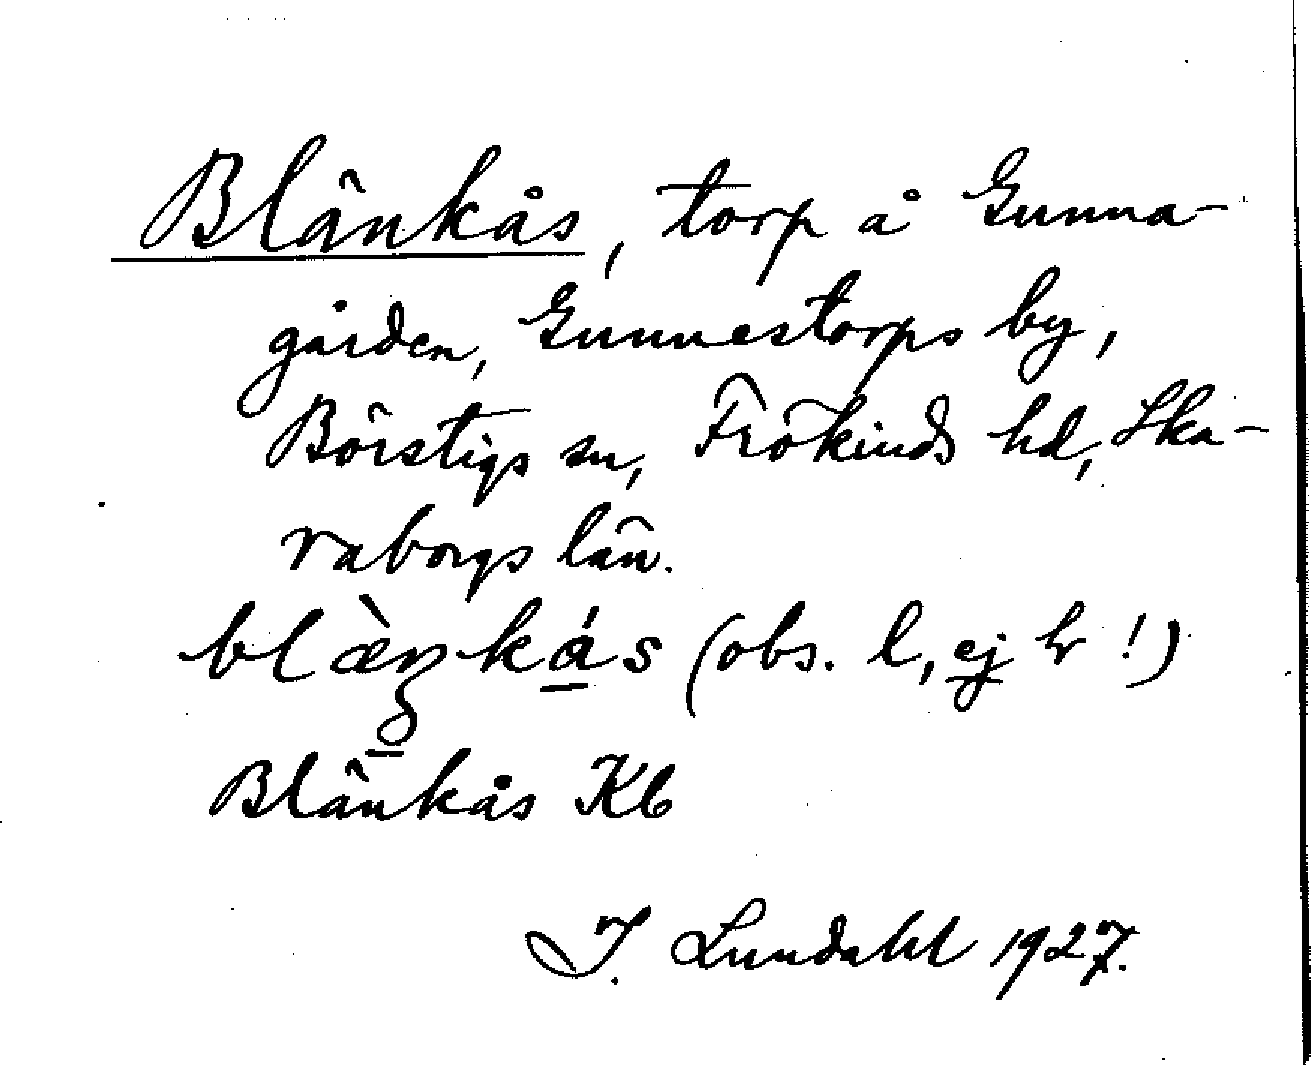 Blänkås, torp å Gunna-
gården, Gunnestorps by,
Börstigs sn, Frökinds hd, Ska-
raborgs län.
blæ̀ŋkás (obs. l, ej hr !)
Blänkås Kb
I. Lundahl 1927.